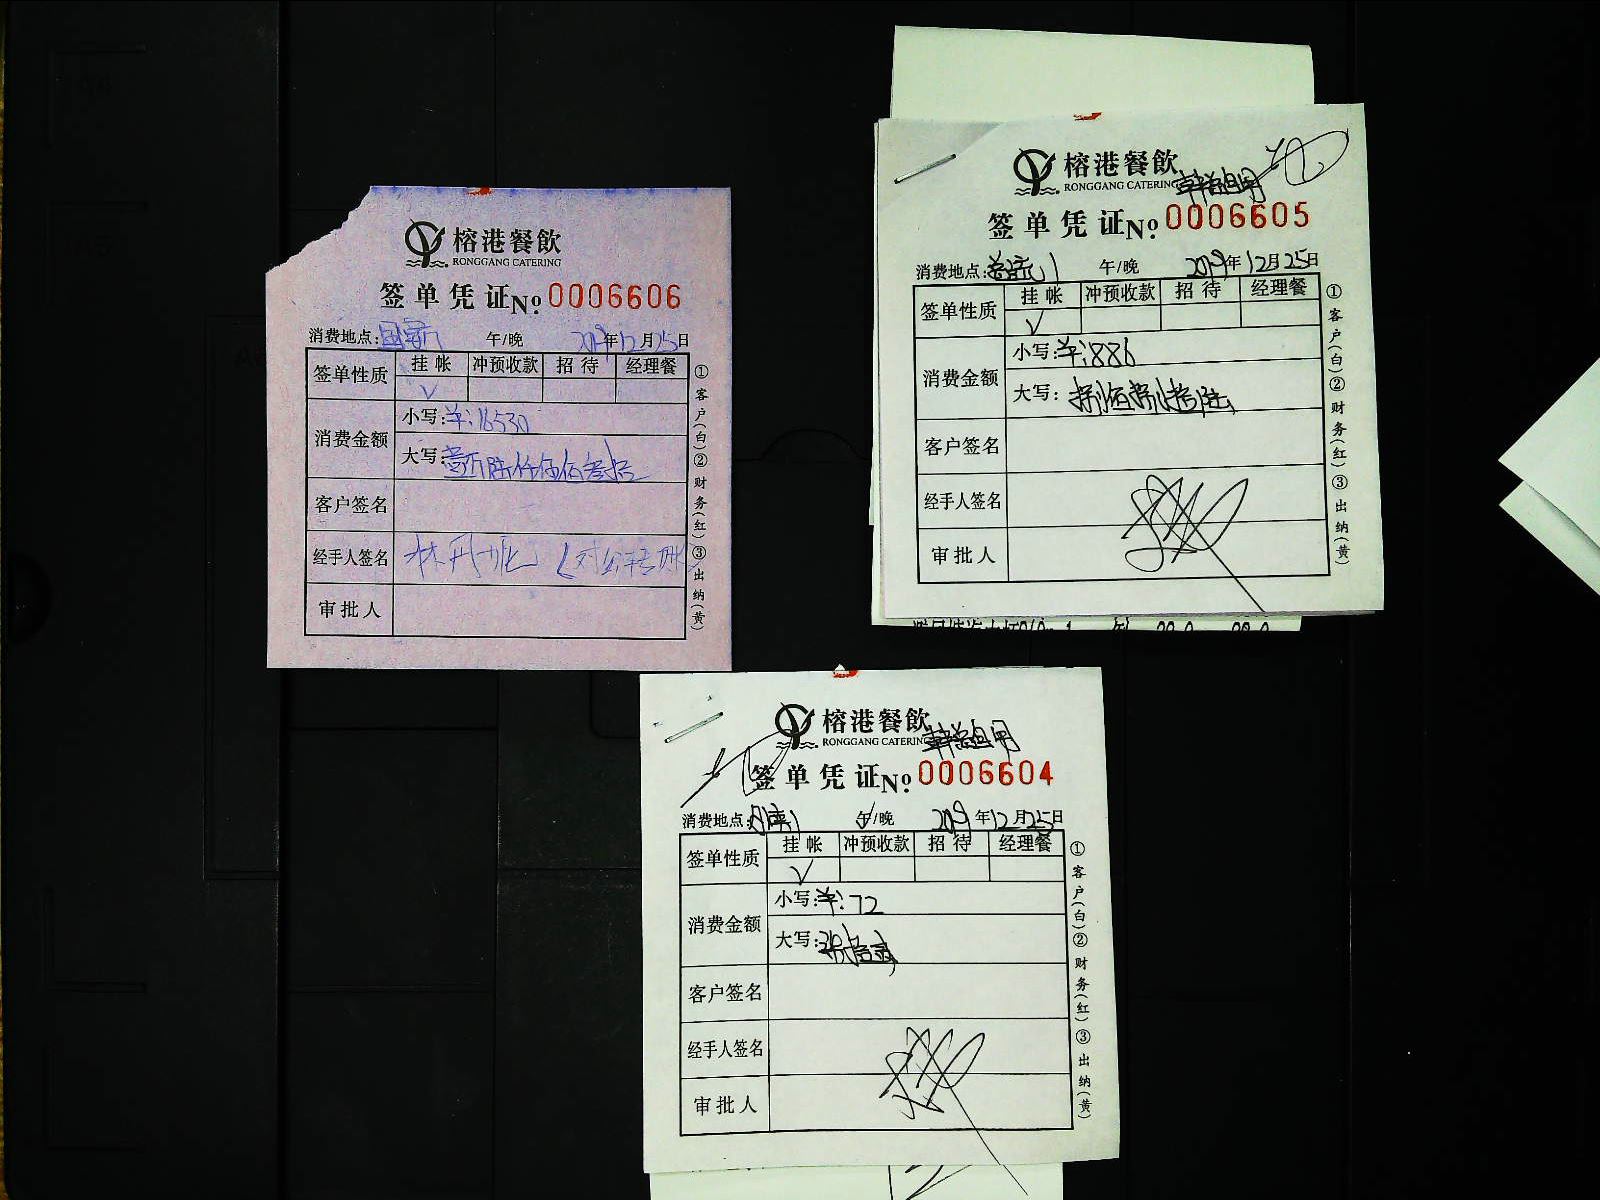 榕港餐飲
RONGGANG CATERING
签单凭证 No. 0006606
消费地点: 午/晚 2019年12月25日
签单性质 挂帐 冲预收款 招待 经理餐
√
消费金额 小写: ¥:16530
大写: 壹万陆仟伍佰叁拾
客户签名
经手人签名
审批人
①客户(白)②财务(红)③出纳(黄)
榕港餐飲
RONGGANG CATERING
韩总自用
签单凭证 No. 0006605
消费地点: 午/晚 2019年12月25日
签单性质 挂帐 冲预收款 招待 经理餐
√
消费金额 小写: ¥:886
大写: 捌佰捌拾陆
客户签名
经手人签名
审批人
①客户(白)②财务(红)③出纳(黄)
榕港餐飲
RONGGANG CATERING
韩总自用
签单凭证 No. 0006604
消费地点: 午/晚 2019年12月25日
签单性质 挂帐 冲预收款 招待 经理餐
√
消费金额 小写: ¥:72
大写: 柒拾贰
客户签名
经手人签名
审批人
①客户(白)②财务(红)③出纳(黄)